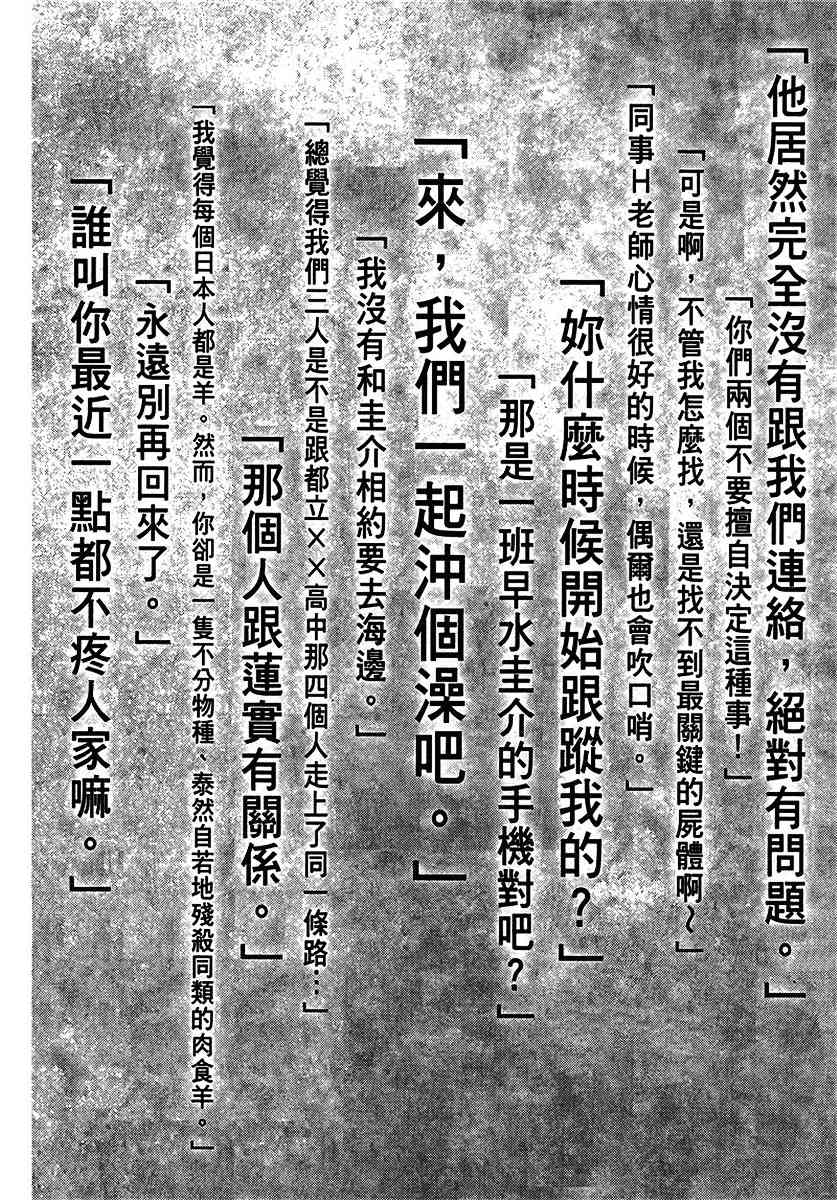 「他居然完全沒有跟我們連絡，絕對有問題。」
「你們兩個不要擅自決定這種事！」
「可是啊，不管我怎麼找，還是找不到最關鍵的屍體啊～」
「同事Ｈ老師心情很好的時候，偶爾也會吹口哨。」
「妳什麼時候開始跟蹤我的？」
「那是一班早水圭介的手機對吧？」
「來，我們一起沖個澡吧。」
「我沒有和圭介相約要去海邊。」
「總覺得我們三人是不是跟都立××高中那四個人走上了同一條路…」
「那個人跟蓮實有關係。」
「我覺得每個日本人都是羊。然而，你卻是一隻不分物種、泰然自若地殘殺同類的肉食羊。」
「永遠別再回來了。」
「誰叫你最近一點都不疼人家嘛。」